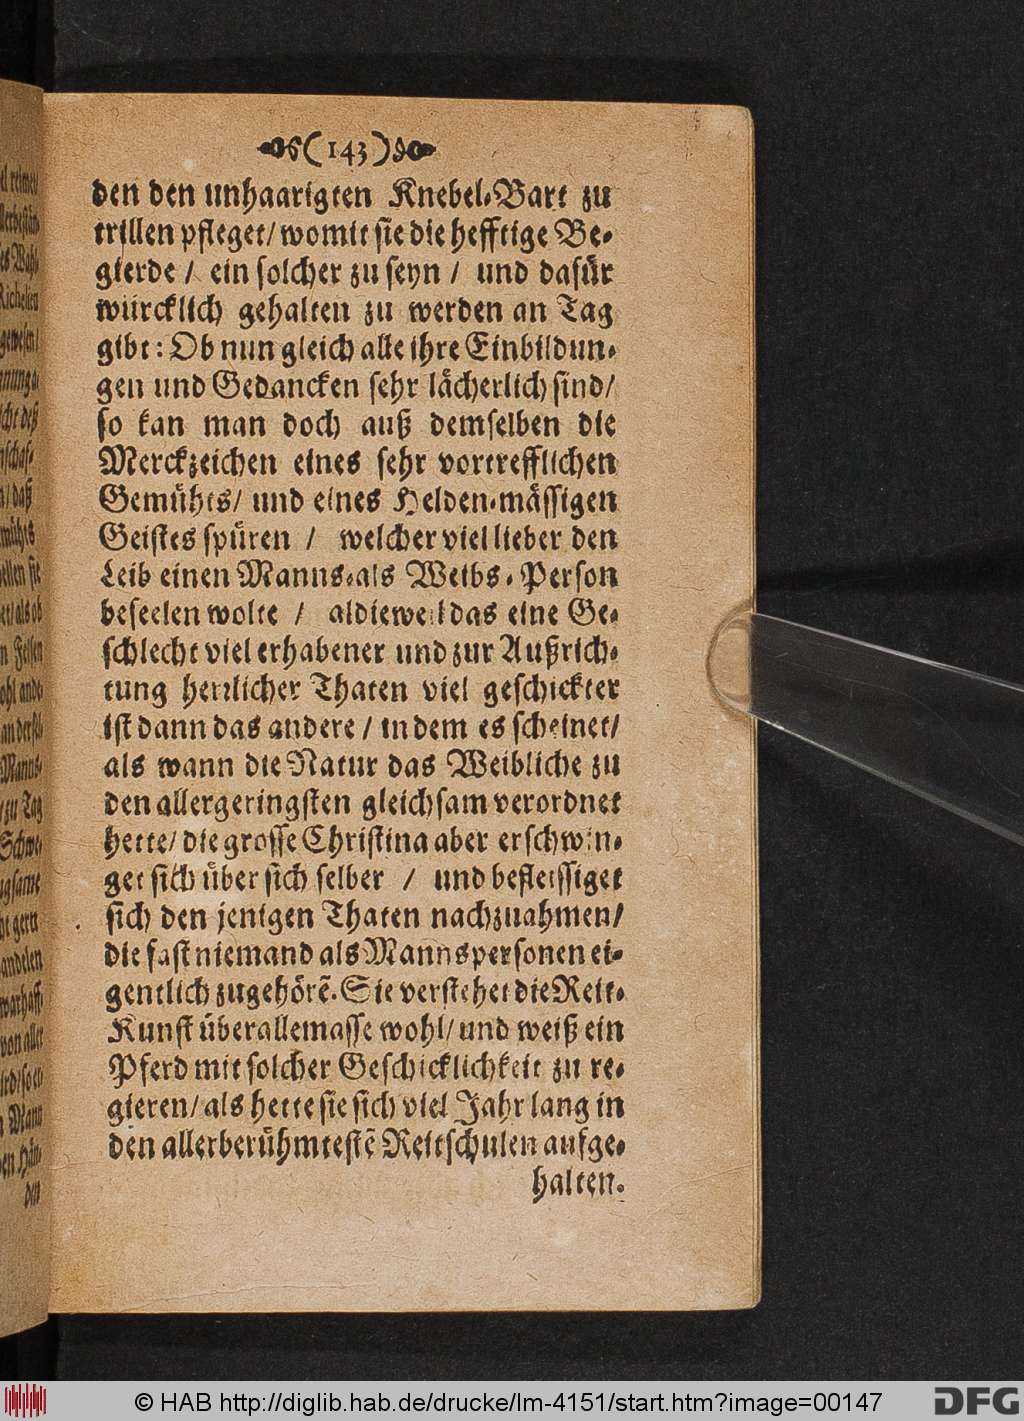 (143)
den den unhaarigten Knebel-Bart zu
trillen pfleget/ womit sie die hefftige Be-
gierde / ein solcher zu seyn / und dafür
würcklich gehalten zu werden an Tag
gibt: Ob nun gleich alle ihre Einbildun-
gen und Gedancken sehr lächerlich sind/
so kan man doch auß demselben die
Merckzeichen eines sehr vortrefflichen
Gemühts/ und eines Helden-mässigen
Geistes spüren / welcher viel lieber den
Leib einen Manns-als Weibs-Person
beseelen wolte / aldieweil das eine Ge-
schlecht viel erhabener und zur Außrich-
tung herrlicher Thaten viel geschickter
ist dann das andere / in dem es scheinet/
als wann die Natur das Weibliche zu
den allergeringsten gleichsam verordnet
hette/ die grosse Christina aber erschwin-
get sich über sich selber / und befleissiget
sich den jenigen Thaten nachzuahmen/
die fast niemand als Mannspersonen ei-
gentlich zugehörẽ. Sie verstehet die Reit-
Kunst über allemasse wohl/ und weiß ein
Pferd mit solcher Geschicklichkeit zu re-
gieren/ als hette sie sich viel Jahr lang in
den allerberühmtestẽ Reitschulen aufge-
halten.
© HAB http://diglib.hab.de/drucke/lm-4151/start.htm?image=00147
DFG